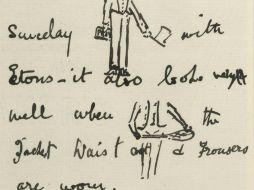 Sunday with
Etons - it also looks
well when the
Jacket Waist & Trousers
are worn.